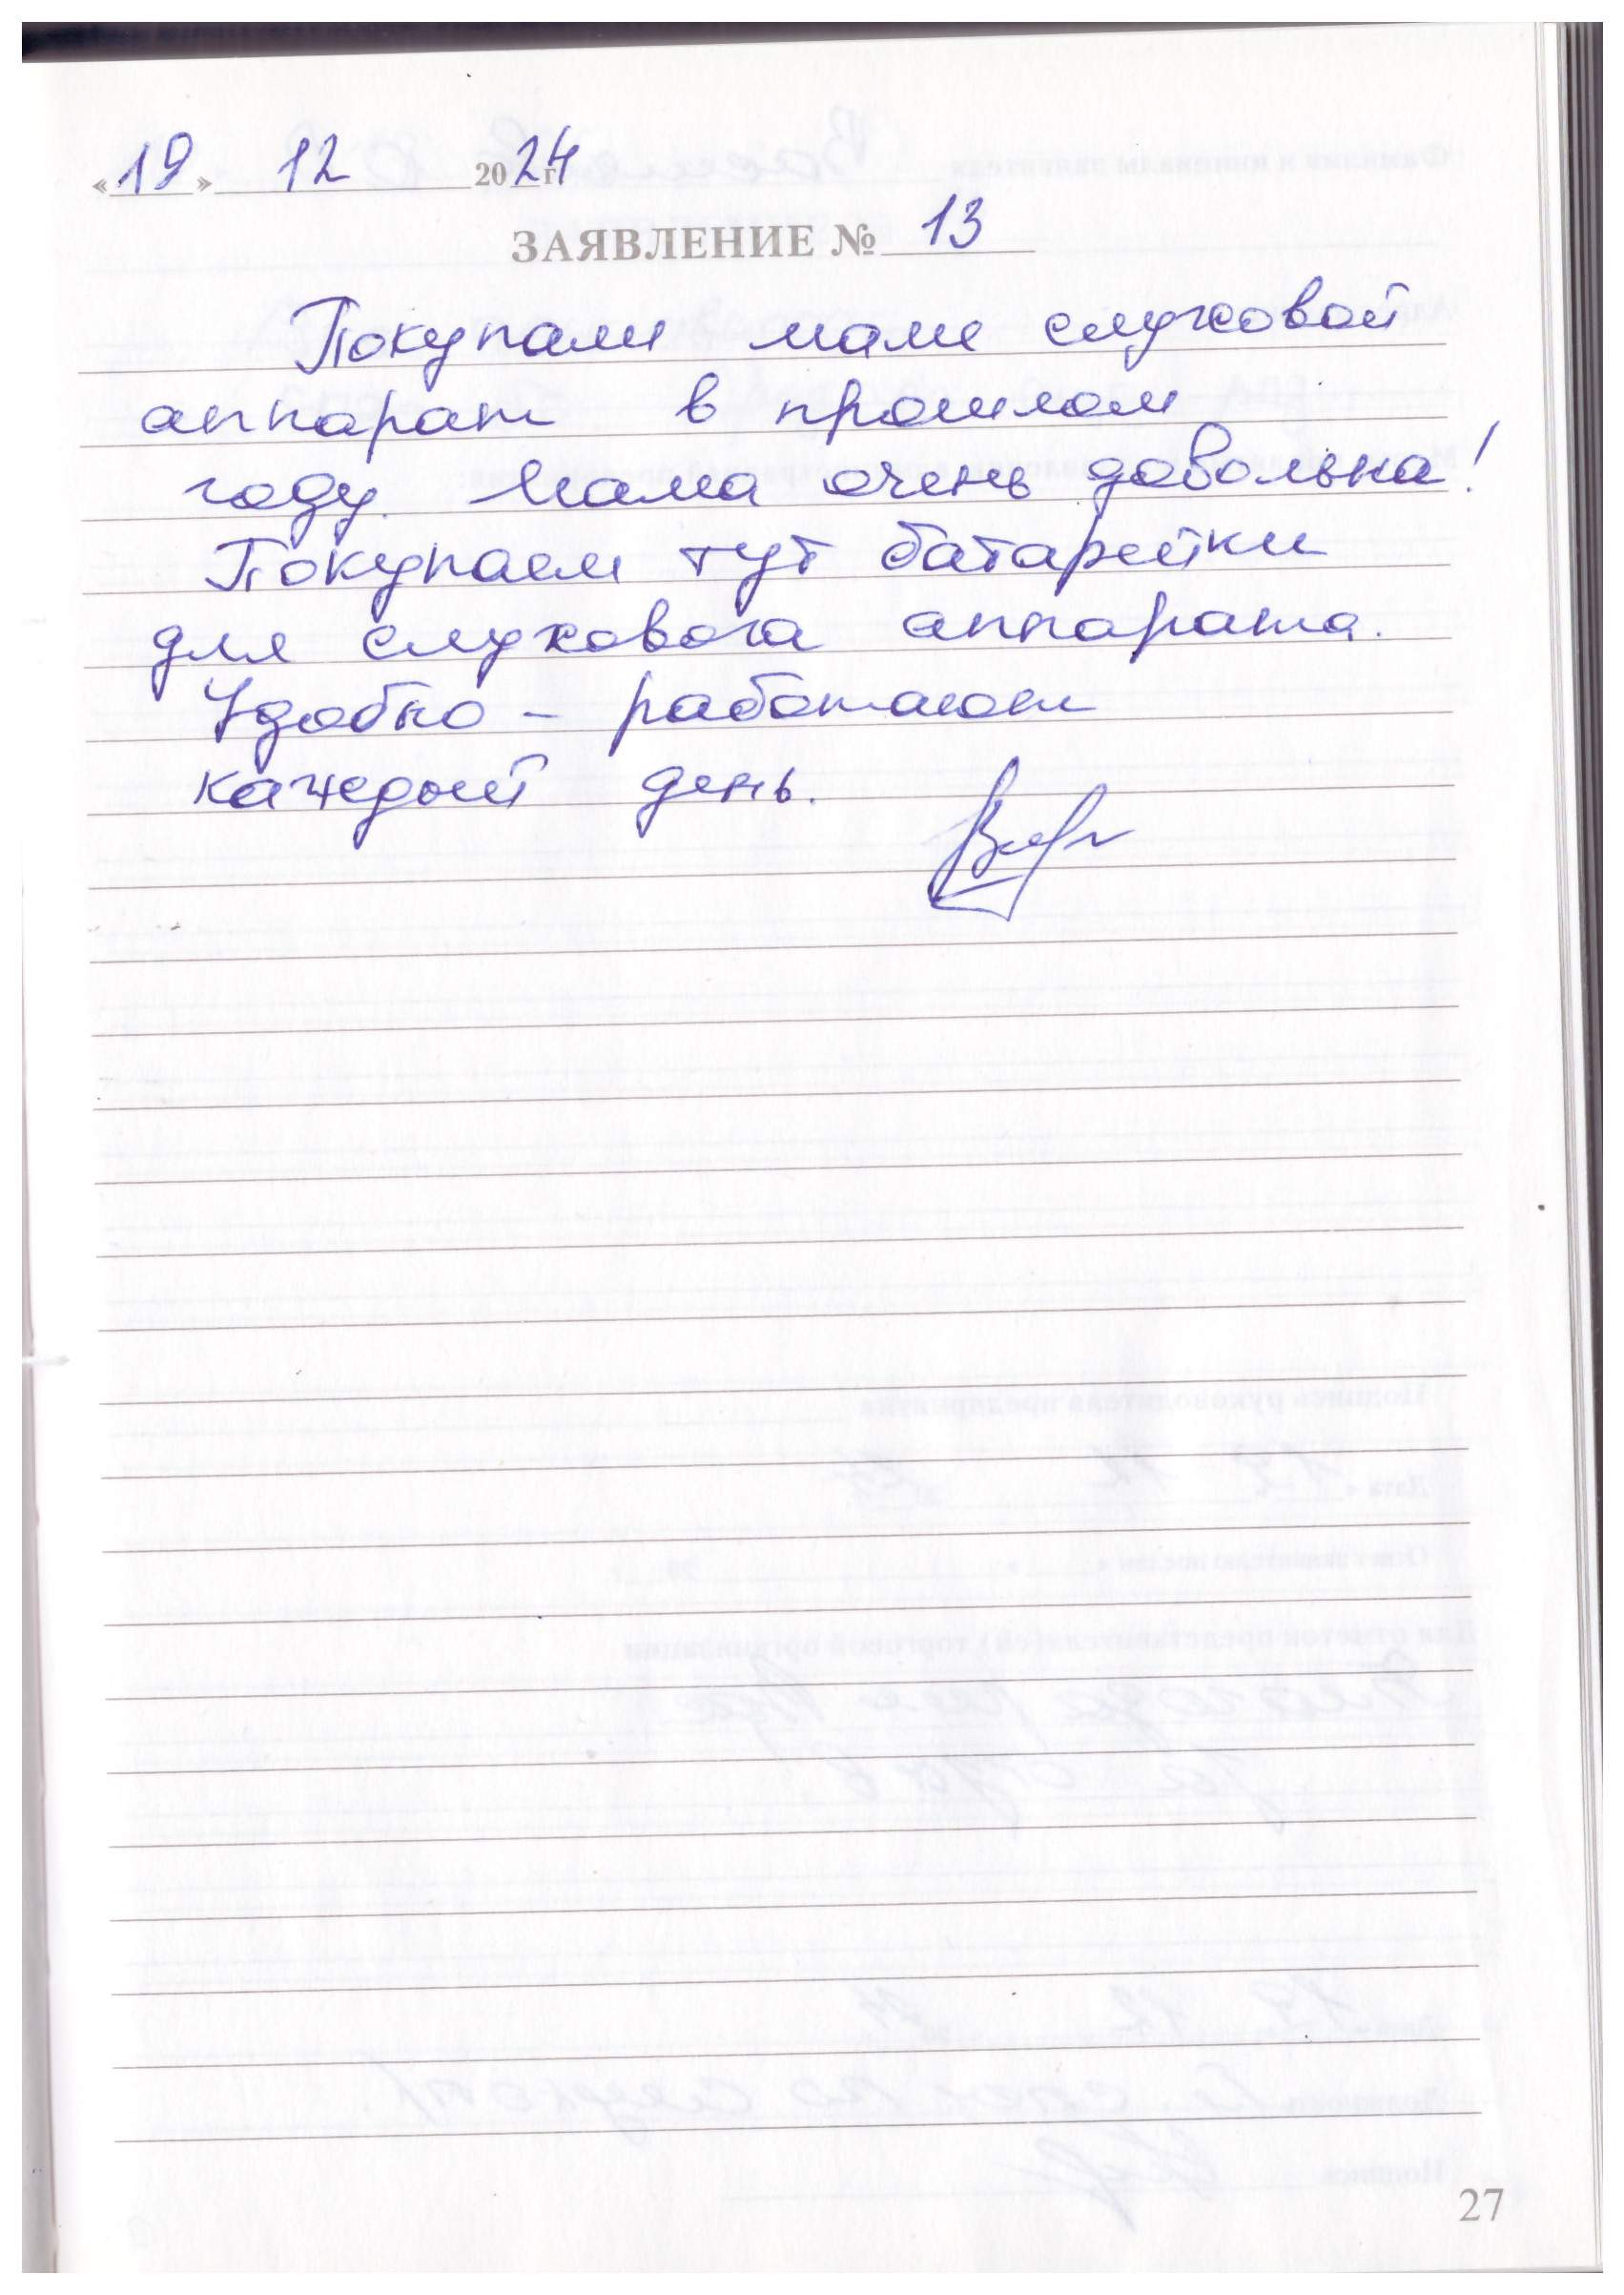 «19» 12 2024 г
ЗАЯВЛЕНИЕ № 13
Покупали маме слуховой
аппарат в прошлом
году. Мама очень довольна!
Покупаем тут батарейки
для слухового аппарата.
Удобно – работают
каждый день.
27